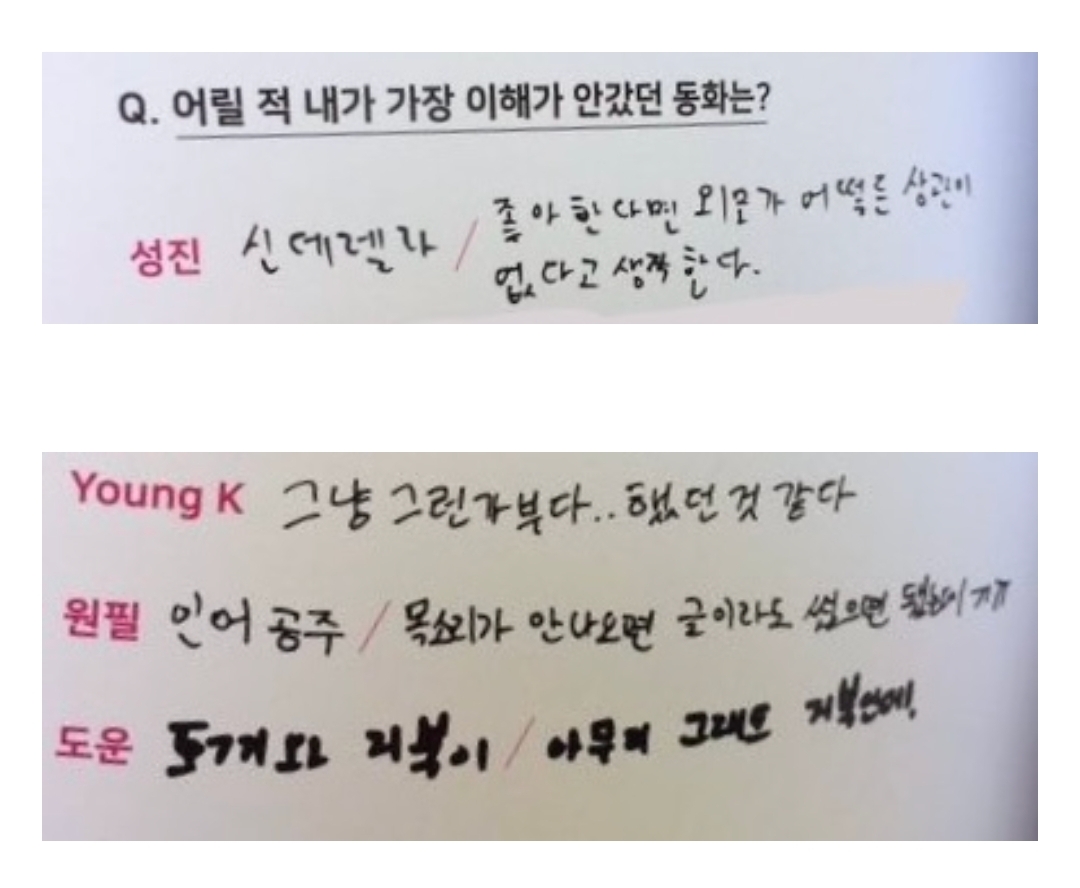 Q. 어릴 적 내가 가장 이해가 안갔던 동화는?
성진 신데렐라 / 좋아한다면 외모가 어떻든 상관이
없다고 생각한다.
Young K 그냥 그런가부다.. 했던 것 같다
원필 인어공주 / 목소리가 안나오면 글이라도 썼으면
도운 토끼와 거북이 / 아무리 그래도 거북인데!